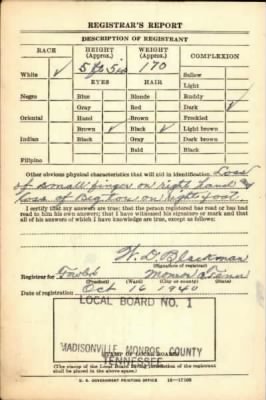 REGISTRAR'S REPORT
DESCRIPTION OF REGISTRANT
RACE HEIGHT (Approx.) WEIGHT (Approx.) COMPLEXION
5 ft 5 in 170
White ✓ EYES HAIR Sallow
Light
Negro Blue Blonde Ruddy
Gray Red Dark ✓
Oriental Hazel Brown Freckled
Brown ✓ Black ✓ Light brown
Indian Black Gray Dark brown
Bald Black
Filipino
Other obvious physical characteristics that will aid in identification Loss
of small finger on right hand
Loss of Big toe on right foot.
I certify that my answers are true; that the person registered has read or has had
read to him his own answers; that I have witnessed his signature or mark and that
all of his answers of which I have knowledge are true, except as follows:
W. D. Blackman
(Signature of registrar)
Registrar for Monroe Tenn
(Precinct) (Ward) (City or county) (State)
Date of registration Oct 16 1940
LOCAL BOARD NO. 1
MADISONVILLE MONROE COUNTY
TENNESSEE
(STAMP OF LOCAL BOARD)
(The stamp of the Local Board having jurisdiction of the registrant
shall be placed in the above space.)
U. S. GOVERNMENT PRINTING OFFICE 16—17105